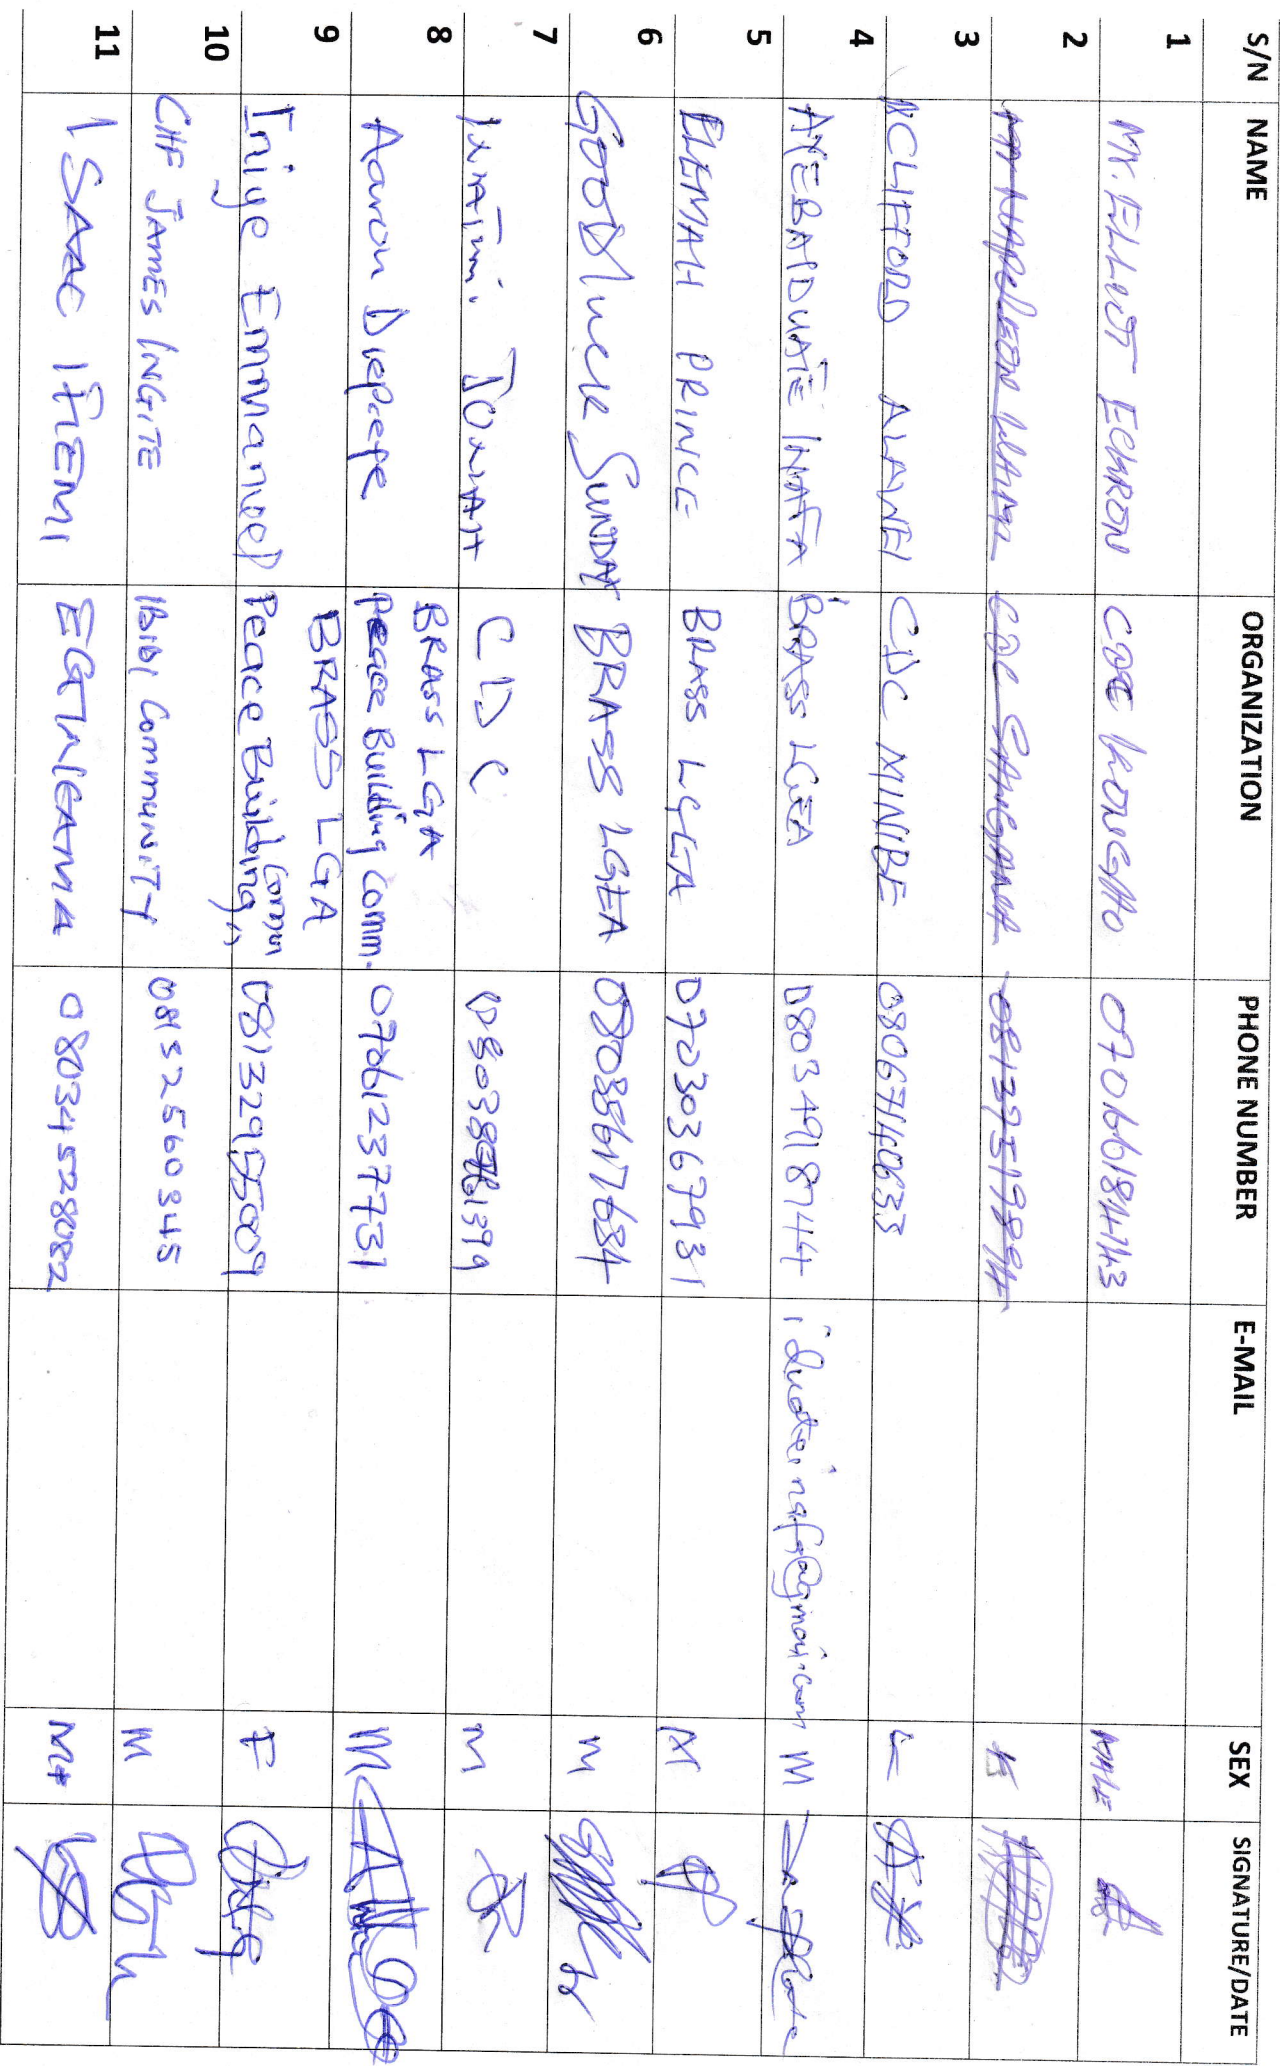 S/N NAME ORGANIZATION PHONE NUMBER E-MAIL SEX SIGNATURE/DATE
1 MR. ELLIOT ECHRON CDC 07066184143 MALE
2 CDC SANGANA 08137519894
3 CLIFFORD ALANEI CDC MINIBE 08067140633
4 AYEBAIDUATE INAFA BRASS LGEA 08034918744 iduateinafa@gmail.com M
5 ELEMAH PRINCE BRASS LGEA 07030367931 M
6 GOODluck SUNDAY BRASS LGEA 08088617684 M
7 JONAH CDC M
8 Aaron Diepiepe BRASS LGA
Peace Building Comm. 07061237731 M
9 Iniye Emmanuel BRASS LGA
Peace Building Comm 08132955009 F
10 CHF JAMES INGITE IBIDI COMMUNITY 08132560345 M
11 ISAAC ITIEMI EGWEAMA 08034528082 M